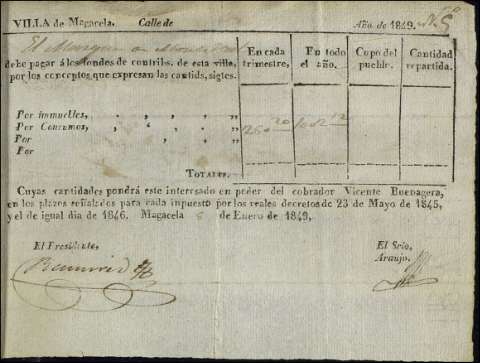 VILLA de Magacela. Calle de Año de 1849. N.º 5
El Marques
debe pagar á los fondos de contribs. de esta villa,
por los conceptos que expresan las cantids. sigtes.
En cada trimestre,
En todo el año.
Cupo del pueblo.
Cantidad repartida.
Por inmuebles, , , , „
Por Consumos, , , , „
Por , , , „
Por
TOTALES.
Cuyas cantidades pondrá este interesado en poder del cobrador Vicente Buenagera,
en los plazos señalados para cada impuesto por los reales decretos de 23 de Mayo de 1845,
y el de igual dia de 1846. Magacela de Enero de 1849.
El Presidente,
El Srio,
Araujo.